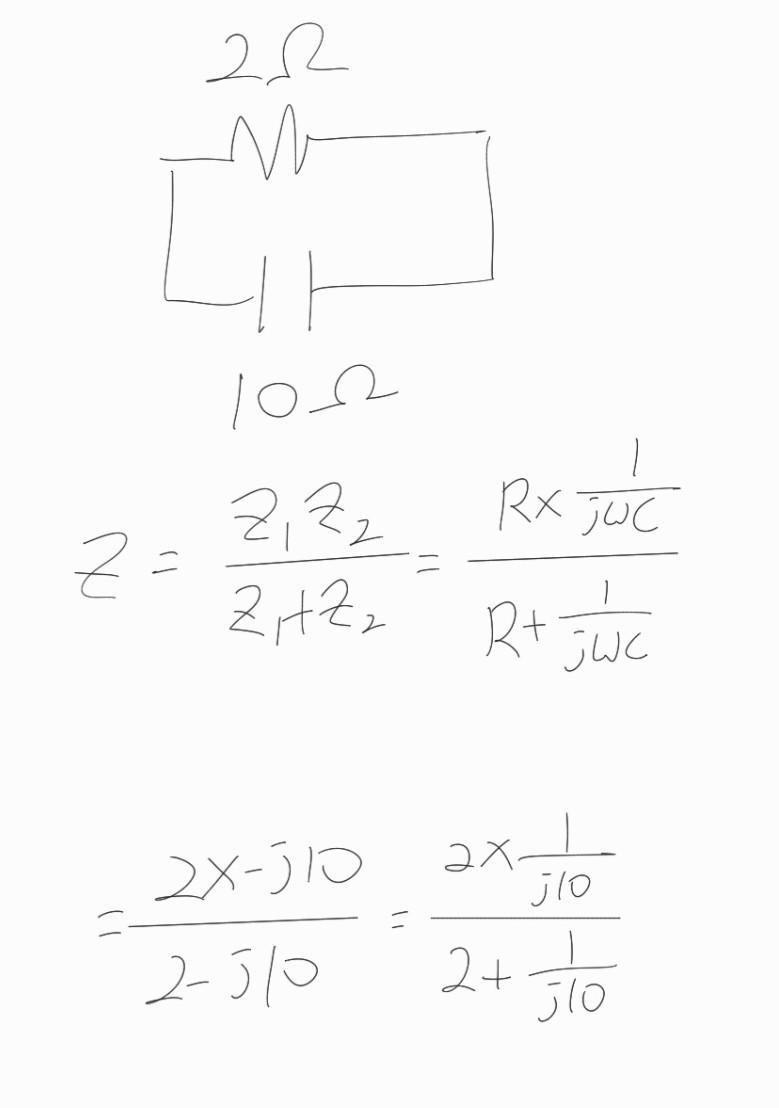 2Ω
10Ω
Z = Z₁Z₂ / Z₁+Z₂ = R× 1/jωC / R+ 1/jωC
= 2×-j10 / 2-j10 = 2× 1/j10 / 2+ 1/j10